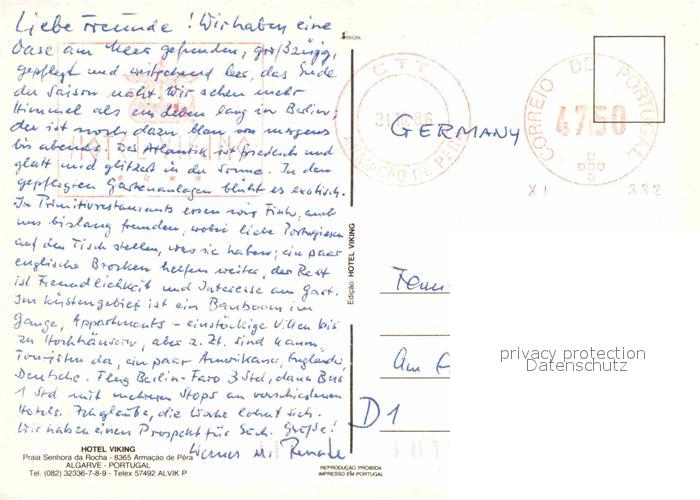 Liebe Freunde! Wir haben eine
Oase am Meer gefunden, großzügig,
gepflegt und weitgehend leer, das Ende
der Saison naht. Wir sehen mehr
Himmel als ein Leben lang in Berlin;
der ist noch dazu blau von morgens
bis abends. Der Atlantik ist friedlich und
glatt und glitzert in der Sonne. In den
gepflegten Gartenanlagen blüht es exotisch.
In Primitivrestaurants essen wir Fisch, auch
uns bislang fremden, wobei liebe Portugiesen
auf den Tisch stellen, was sie haben; ein paar
englische Brocken helfen weiter, der Rest
ist Freundlichkeit und Interesse am Gast.
Im Küstengebiet ist ein Bauboom im
Gange, Appartments - einstöckige Villen bis
zu Hochhäusern, aber z. Zt. sind kaum
Touristen da, ein paar Amerikaner, Engländer,
Deutsche. Flug Berlin-Faro 3 Std, dann Bus
1 Std mit mehreren Stops an verschiedenen
Hotels. Ich glaube, die Woche lohnt sich.
Wir haben einen Prospekt für Euch. Grüße!
Werner u. Renate
HOTEL VIKING
Praia Senhora da Rocha - 8365 Armação de Pêra
ALGARVE - PORTUGAL
Tel: (082) 32336-7-8-9 - Telex 57492 ALVIK P
Edição: HOTEL VIKING
REPRODUÇÃO PROIBIDA
IMPRESSO EM PORTUGAL
CTT
86
ARMAÇÃO DE PÊRA
CORREIO DE PORTUGAL
47.50
XI 332
HOTEL VIKING
GERMANY
Am
D1
privacy protection
Datenschutz